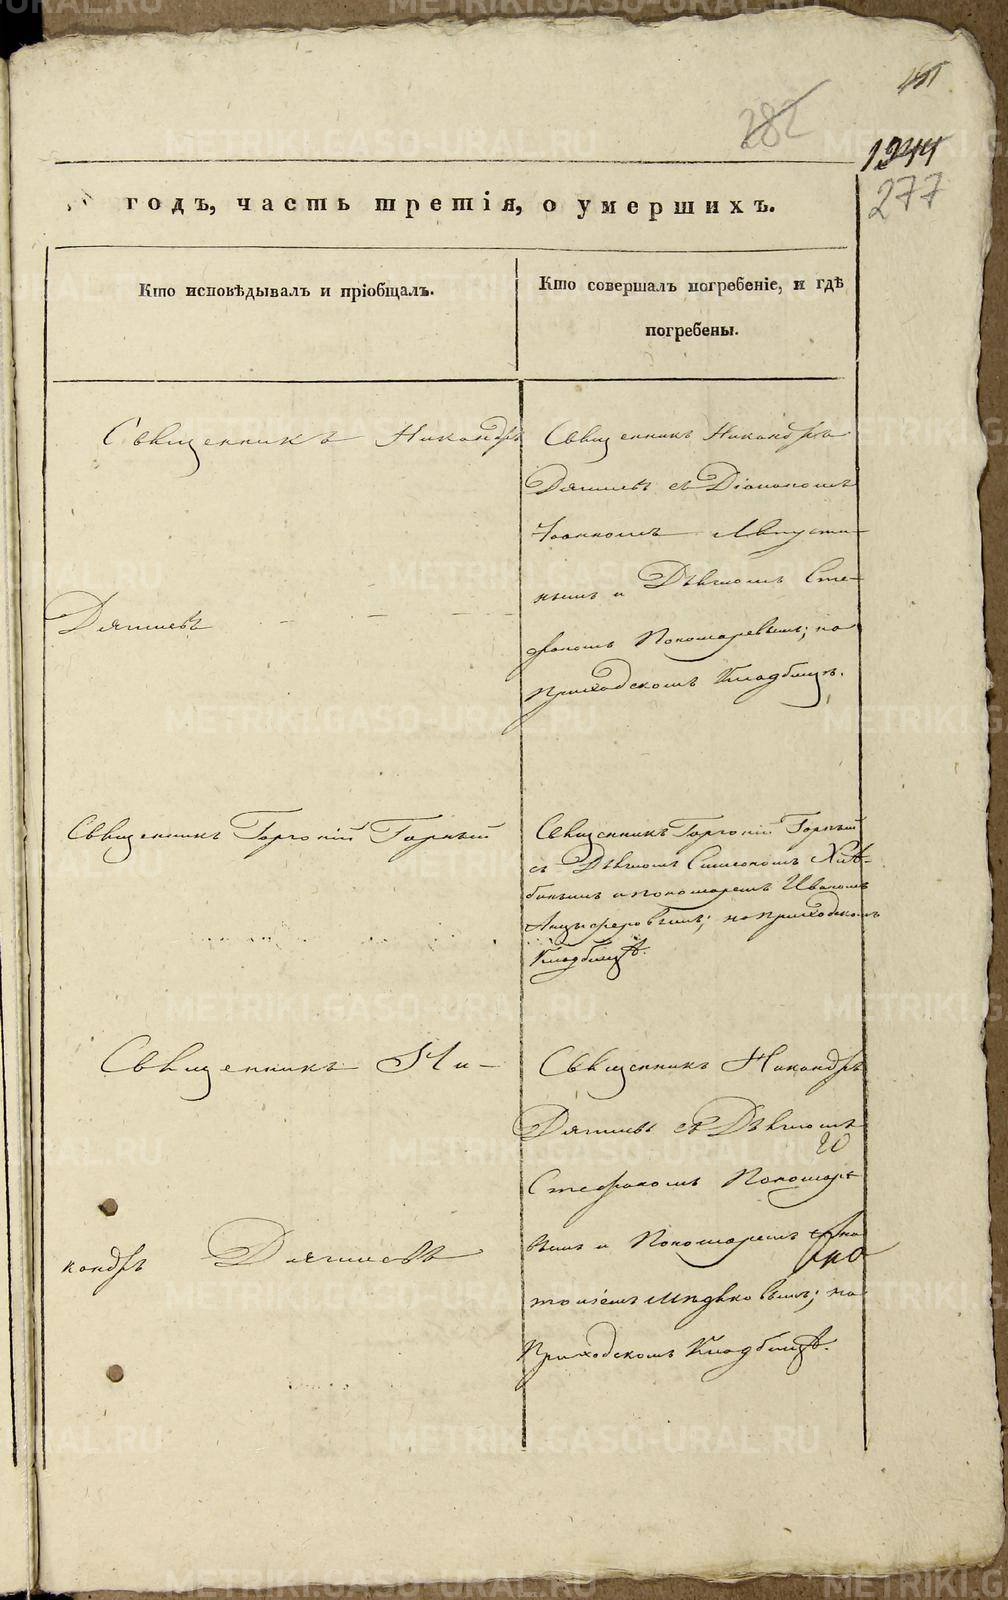 282
1944
277
годъ, часть третія, о умершихъ.
Кто исповѣдывалъ и пріобщалъ.
Кто совершалъ погребеніе, и гдѣ
погребены.
Священникъ Никандръ
Дягилевъ
Священникъ Никандръ
Дягилевъ съ Діакономъ
Іоанномъ Августи-
нымъ и Дьячкомъ Сте-
фаномъ Пономаревымъ; на
Приходскомъ Кладбищѣ.
Священникъ Горгоній Горный
Священникъ Горгоній Горный
съ Дьячкомъ Симеономъ
и пономаремъ Иваномъ
на приходскомъ
Кладбищѣ.
Священникъ Ни-
кандръ Дягилевъ
Священникъ Никандръ
Дягилевъ съ Дьячкомъ
20
Стефаномъ Пономаре
вымъ и Пономаремъ
на
Приходскомъ Кладбищѣ.
METRIKI.GASO-URAL.RU